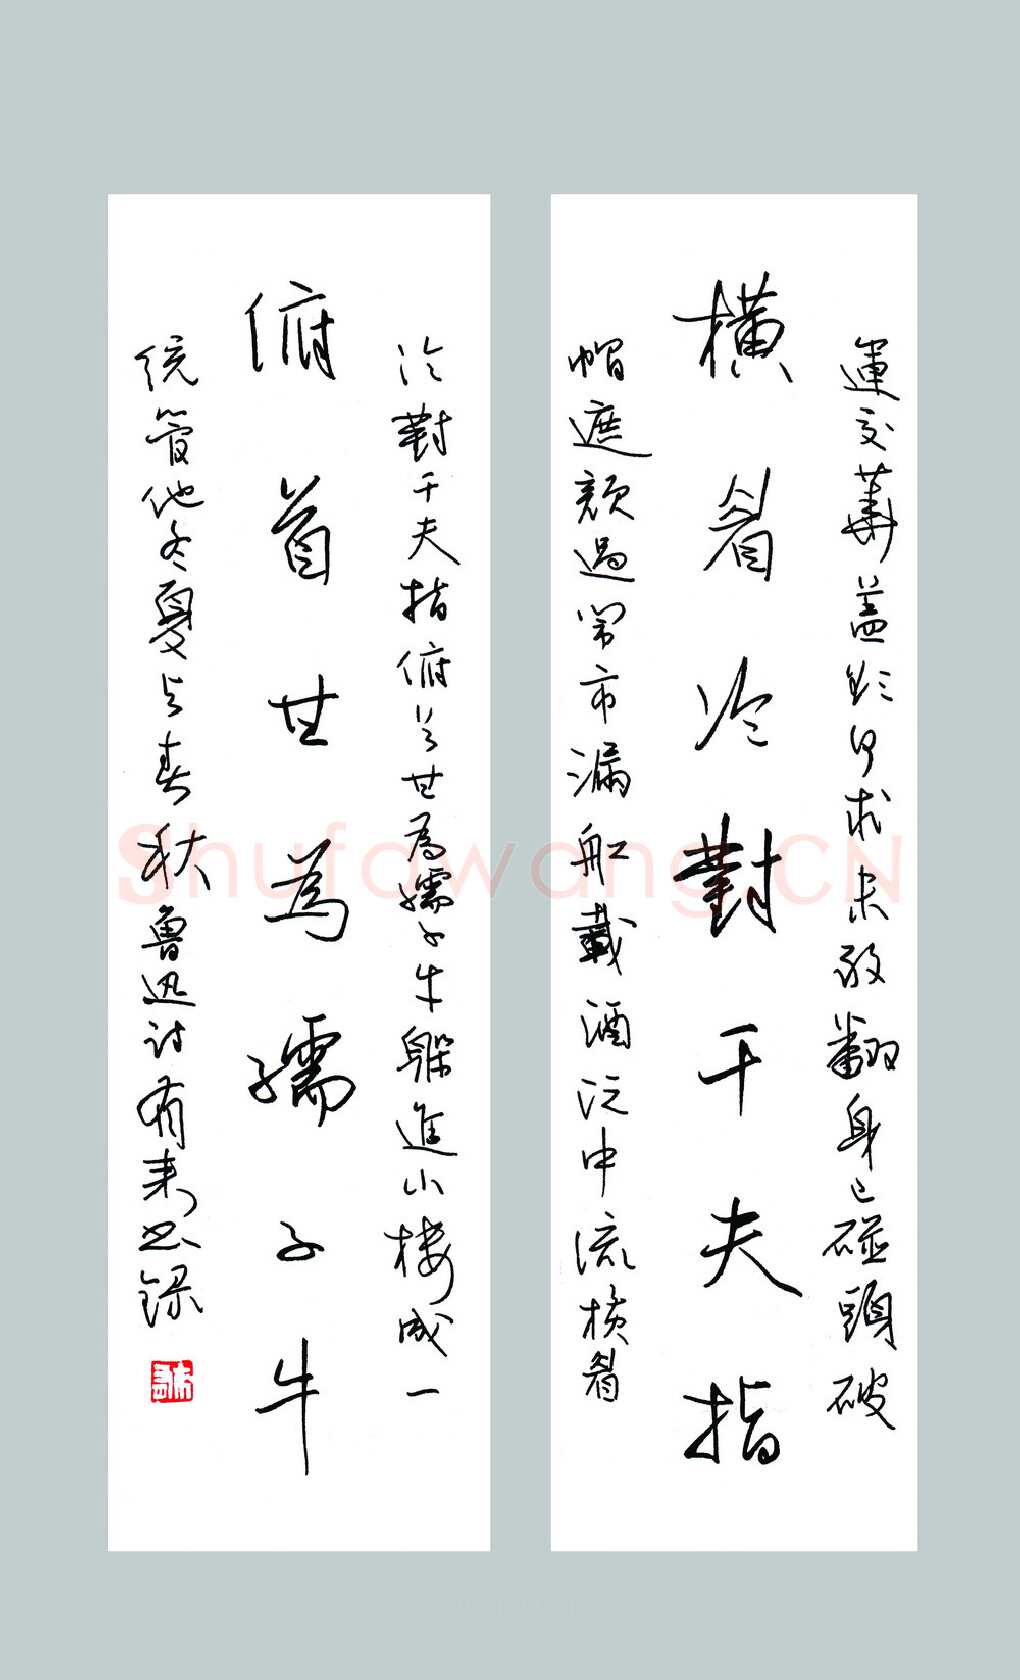 運交華蓋欲何求未敢翻身已碰頭破
橫眉冷對千夫指
帽遮顏過鬧市漏船載酒泛中流橫眉
冷對千夫指俯首甘為孺子牛躲進小樓成一
俯首甘為孺子牛
統管他冬夏与春秋魯迅詩有来书録
Shufawang.CN